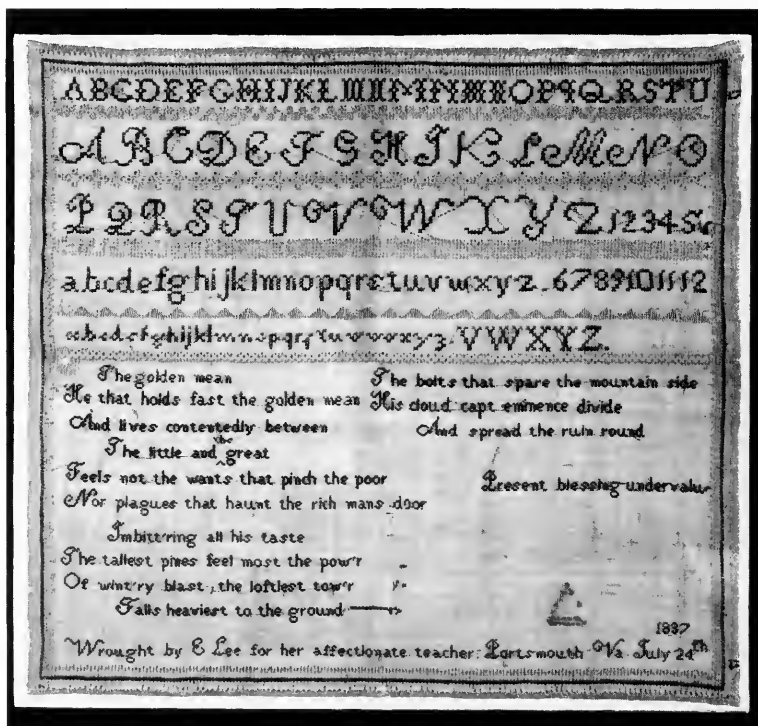 ABCDEFGHIJKLMNOPQRSTU
ABCDEFGHIJKLMNO
PQRSTUVWXYZ12345
abcdefghijklmnopqrstuvwxyz.6789101112
abcdefghijklmnopqrstuvwxyz.VWXYZ.
The golden mean
He that holds fast the golden mean
And lives contentedly between
The little and the great
Feels not the wants that pinch the poor
Nor plagues that haunt the rich mans door
Imbitt'ring all his taste
The tallest pines feel most the pow'r
Of wint'ry blast, the loftiest tow'r
Falls heaviest to the ground
The bolts that spare the mountain side
His cloud capt eminence divide
And spread the ruin round
Present blessing undervalu
1837
Wrought by E Lee for her affectionate teacher: Portsmouth Va July 24th